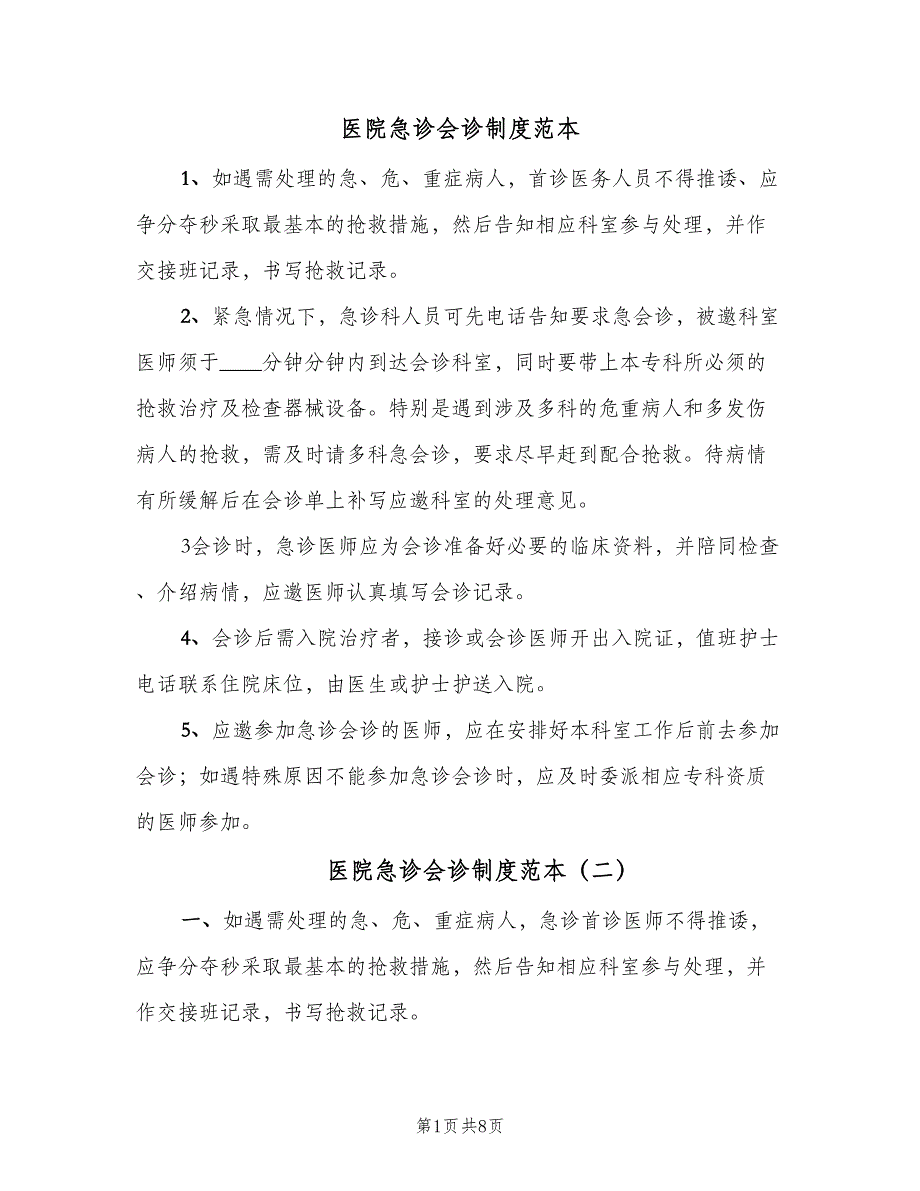 医院急诊会诊制度范本
1、如遇需处理的急、危、重症病人，首诊医务人员不得推诿、应
争分夺秒采取最基本的抢救措施，然后告知相应科室参与处理，并作
交接班记录，书写抢救记录。
2、紧急情况下，急诊科人员可先电话告知要求急会诊，被邀科室
医师须于____分钟分钟内到达会诊科室，同时要带上本专科所必须的
抢救治疗及检查器械设备。特别是遇到涉及多科的危重病人和多发伤
病人的抢救，需及时请多科急会诊，要求尽早赶到配合抢救。待病情
有所缓解后在会诊单上补写应邀科室的处理意见。
3会诊时，急诊医师应为会诊准备好必要的临床资料，并陪同检查
、介绍病情，应邀医师认真填写会诊记录。
4、会诊后需入院治疗者，接诊或会诊医师开出入院证，值班护士
电话联系住院床位，由医生或护士护送入院。
5、应邀参加急诊会诊的医师，应在安排好本科室工作后前去参加
会诊；如遇特殊原因不能参加急诊会诊时，应及时委派相应专科资质
的医师参加。
医院急诊会诊制度范本（二）
一、如遇需处理的急、危、重症病人，急诊首诊医师不得推诿，
应争分夺秒采取最基本的抢救措施，然后告知相应科室参与处理，并
作交接班记录，书写抢救记录。
第1页 共8页